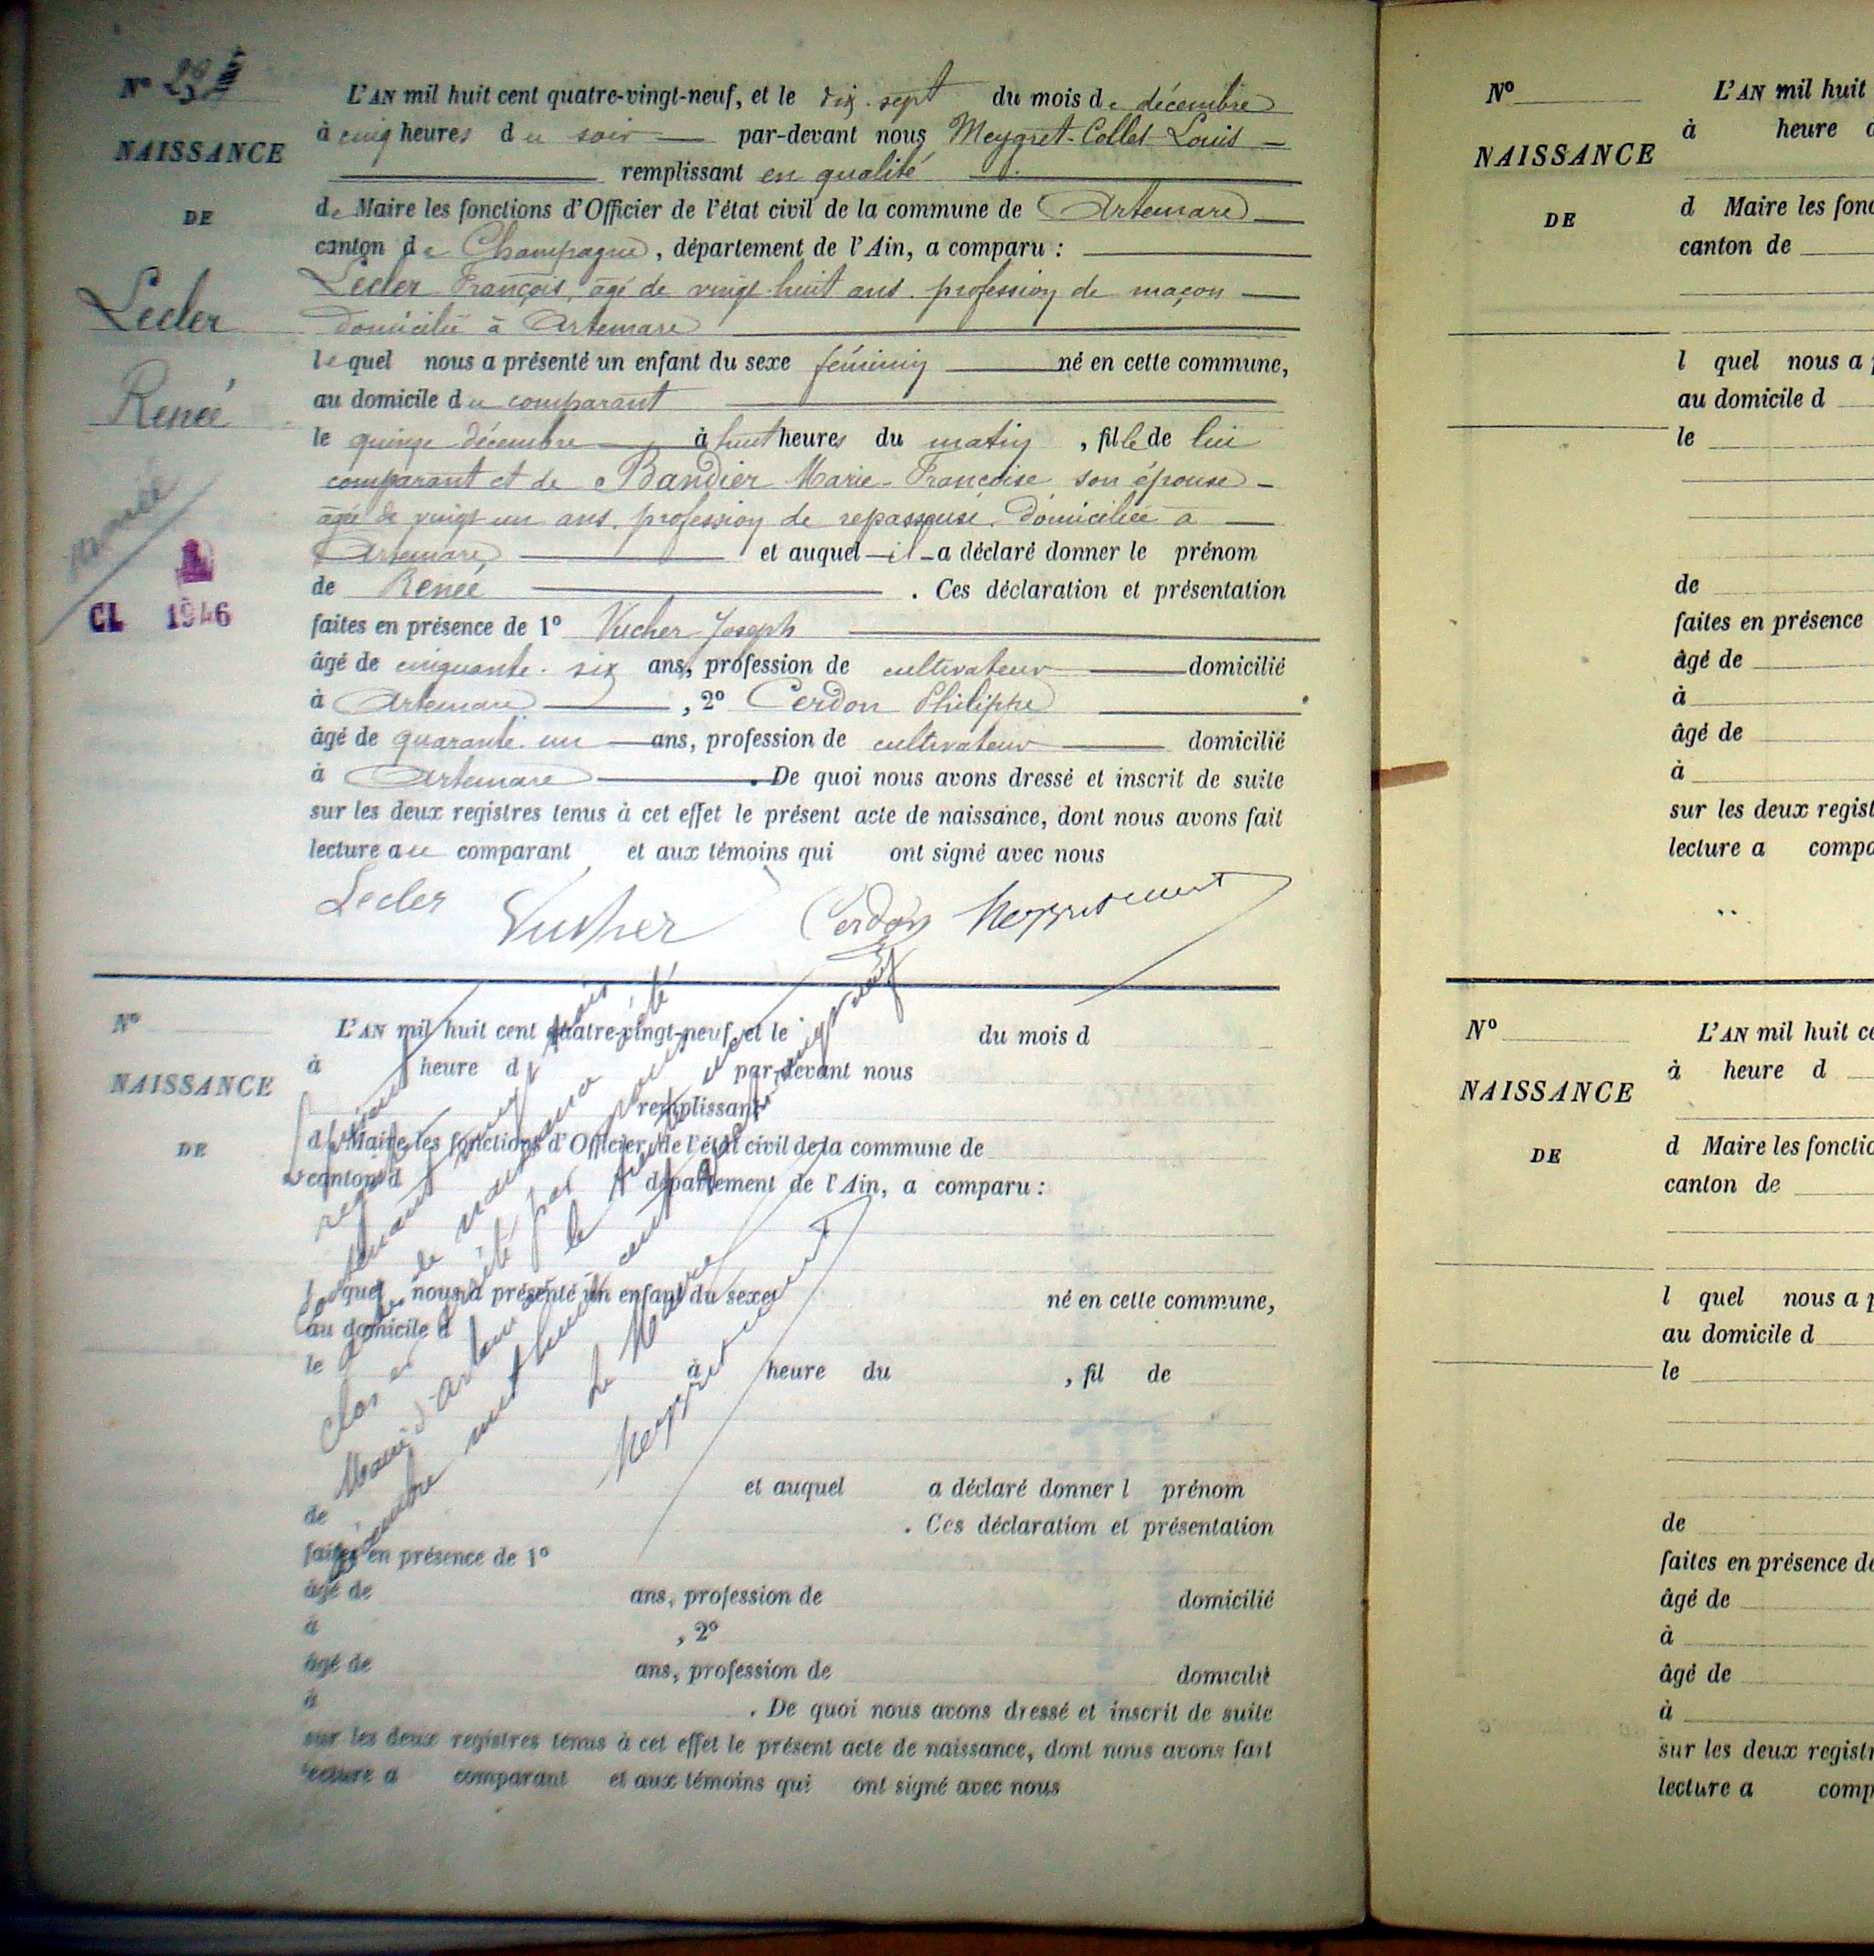 Nº 23
NAISSANCE
DE
Lecler
Renée
CL 1946
L'AN mil huit cent quatre-vingt-neuf, et le dix-sept du mois de décembre
à cinq heures du soir par-devant nous Meygret-Collet Louis
remplissant en qualité
de Maire les fonctions d'Officier de l'état civil de la commune de Artemare
canton de Champagne, département de l'Ain, a comparu :
Lecler François, âgé de vingt-huit ans, profession de maçon
domicilié à Artemare
lequel nous a présenté un enfant du sexe féminin né en cette commune,
au domicile du comparant
le quinze décembre à huit heures du matin, fille de lui
comparant et de Bandier Marie-Françoise son épouse
agée de vingt un ans, profession de repasseuse, domiciliée à
Artemare et auquel il a déclaré donner le prénom
de Renée. Ces déclaration et présentation
faites en présence de 1º Vucher Joseph
âgé de cinquante-six ans, profession de cultivateur domicilié
à Artemare, 2º Cerdon Philippe
âgé de quarante-un ans, profession de cultivateur domicilié
à Artemare. De quoi nous avons dressé et inscrit de suite
sur les deux registres tenus à cet effet le présent acte de naissance, dont nous avons fait
lecture au comparant et aux témoins qui ont signé avec nous
Lecler Vucher Cerdon
Nº
NAISSANCE
DE
L'AN mil huit cent quatre-vingt-neuf, et le du mois d
à heure d par-devant nous
remplissant
d Maire les fonctions d'Officier de l'état civil de la commune de
canton d département de l'Ain, a comparu :
l quel nous a présenté un enfant du sexe né en cette commune,
au domicile d
le à heure du , fil de
et auquel a déclaré donner l prénom
de . Ces déclaration et présentation
faites en présence de 1º
âgé de ans, profession de domicilié
à , 2º
âgé de ans, profession de domicilié
à . De quoi nous avons dressé et inscrit de suite
sur les deux registres tenus à cet effet le présent acte de naissance, dont nous avons fait
lecture a comparant et aux témoins qui ont signé avec nous
clos et arrêté par nous
Maire d'Artemare le trente un
décembre mil huit cent quatre vingt neuf
Le Maire
Nº
NAISSANCE
DE
L'AN mil huit
à heure
d Maire les fonc
canton de
l quel nous a
au domicile d
le
de
faites en présence
âgé de
à
âgé de
à
sur les deux regist
lecture a compa
Nº
NAISSANCE
DE
L'AN mil huit ce
à heure d
d Maire les fonctio
canton de
l quel nous a p
au domicile d
le
de
faites en présence de
âgé de
à
âgé de
à
sur les deux registr
lecture a comp